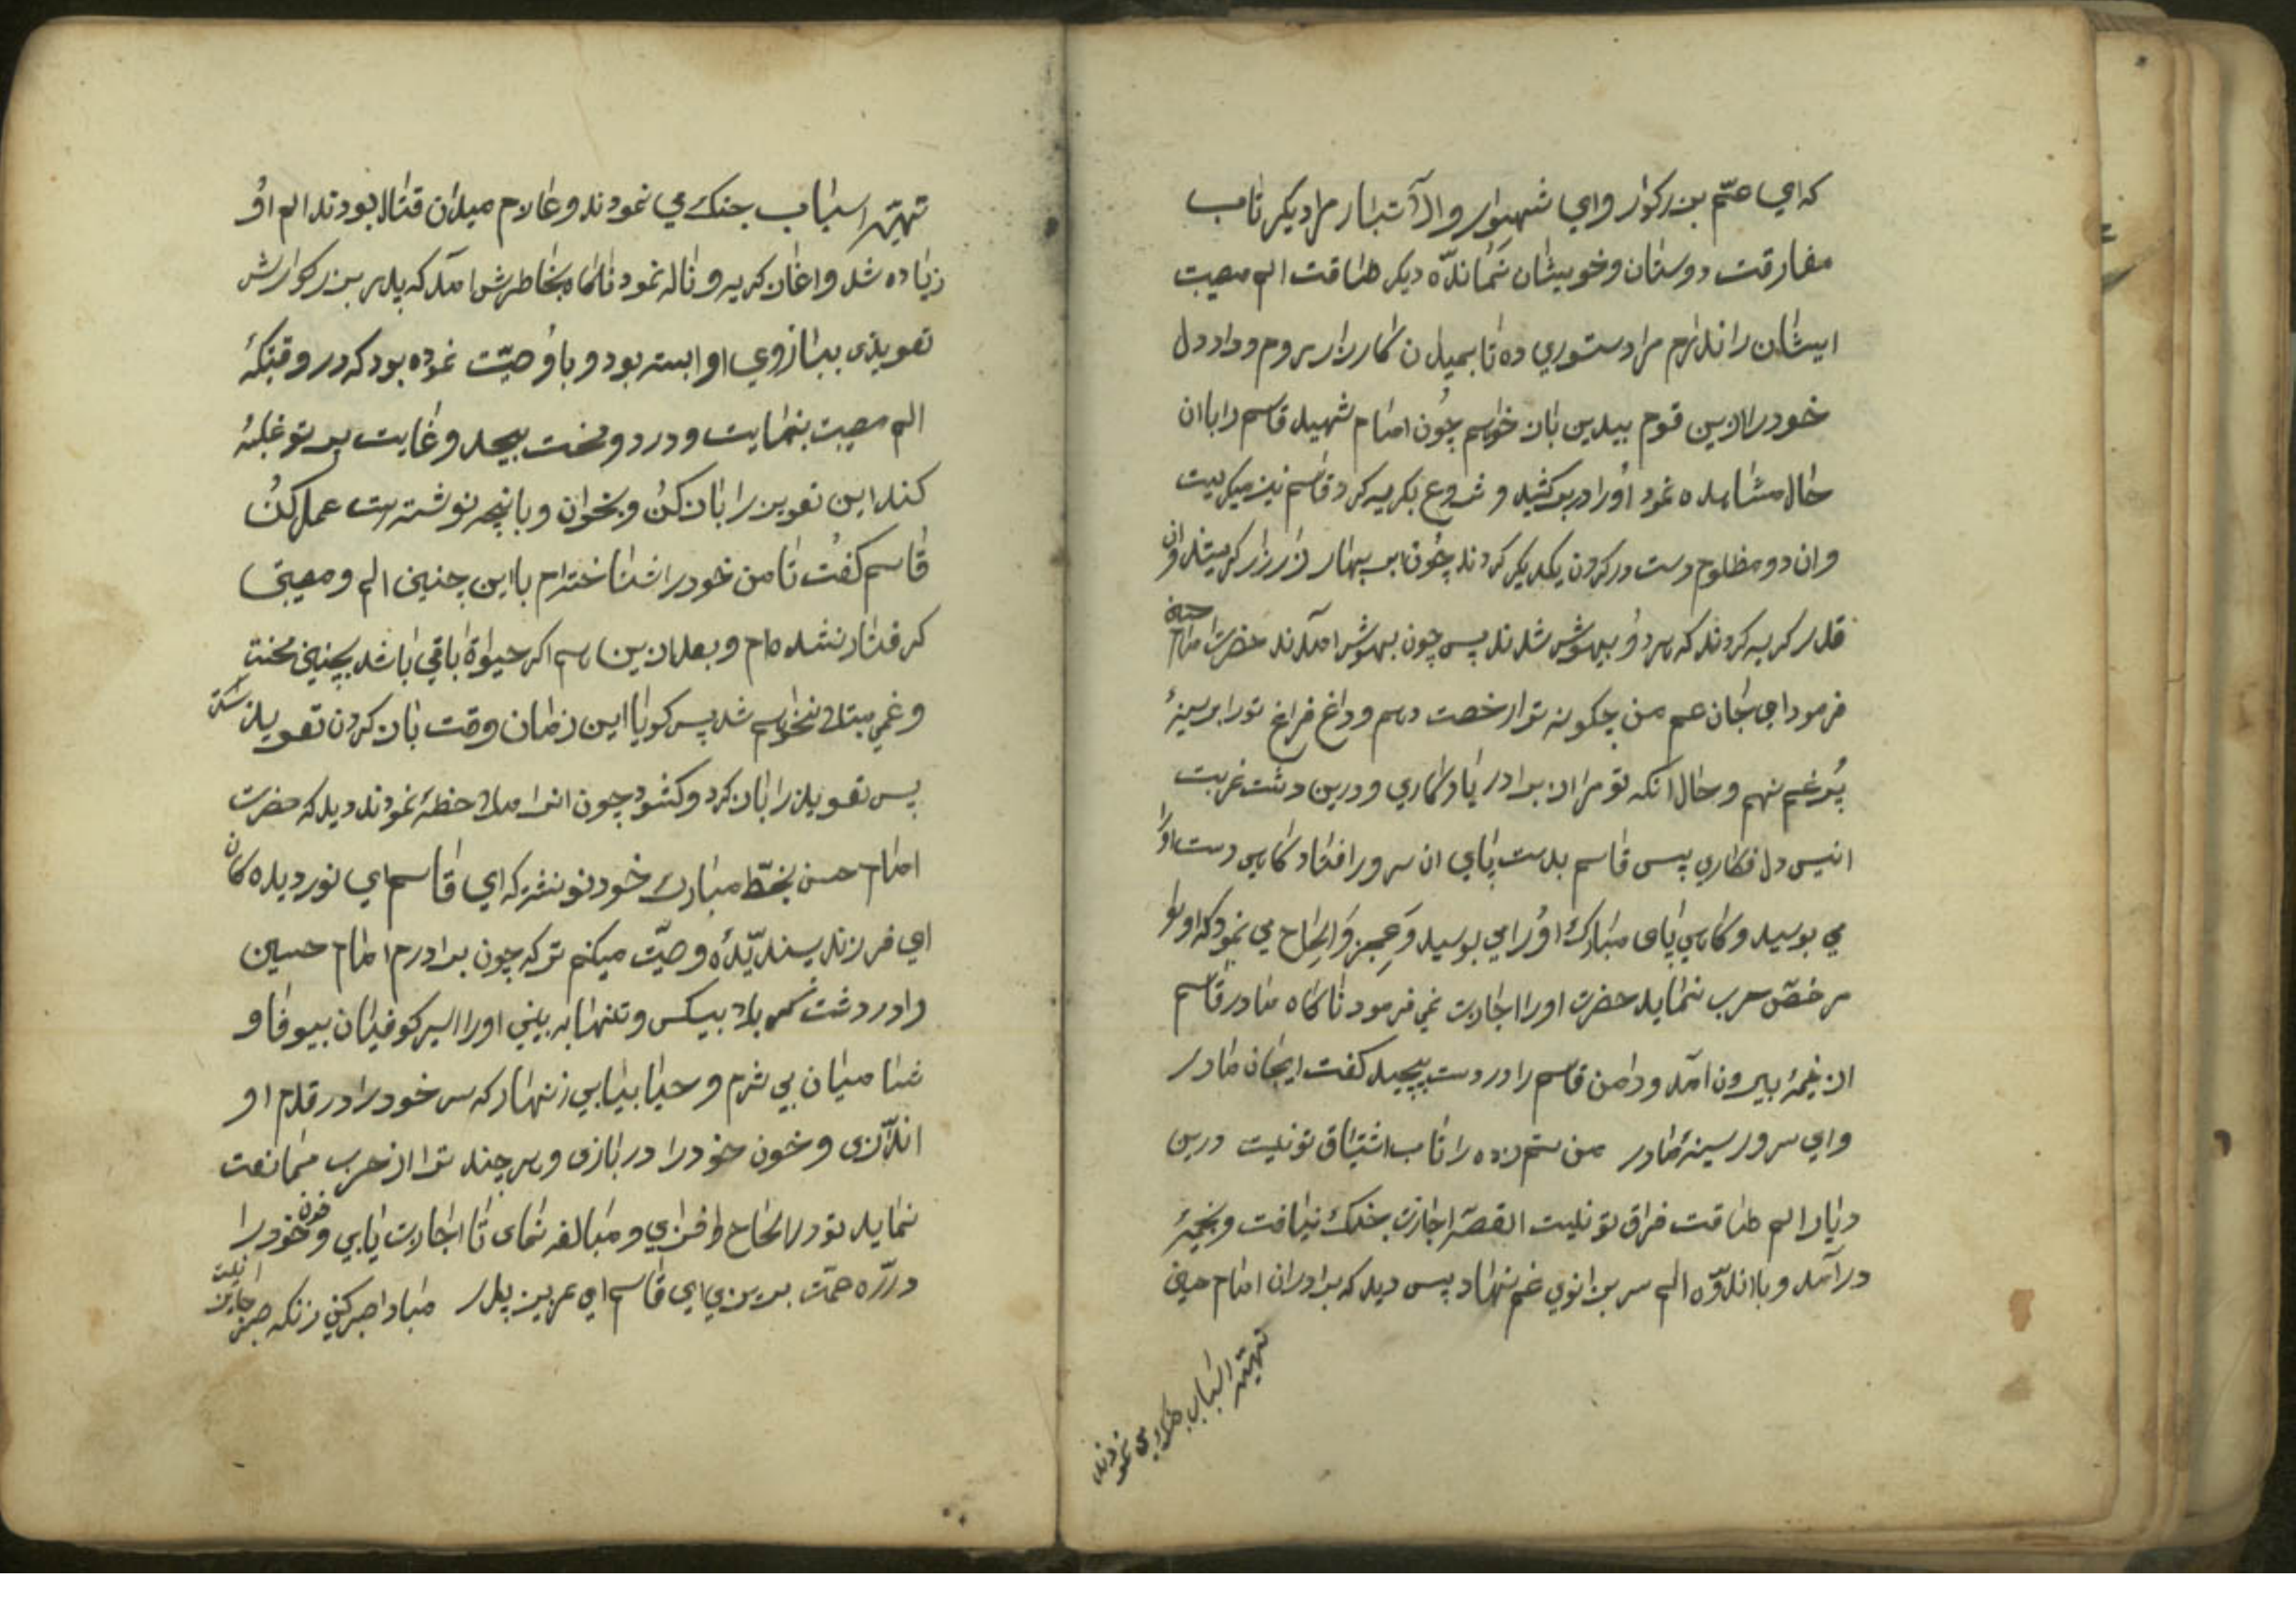 که ای عمّ بزرکوار و ای شهسوار والاتبار مرا دیکر تاب
مفارقت دوستان و خویشان نمانده دیکر طاقت الم مصیبت
ایشان را ندارم مرا دستوری ده تا بمیدان کارزار روم و داد دل
خود را ازین قوم بیدین باز خواهم چُون امام شهید قاسم را بآن
حال مشاهده نمود اُورا در بر کشید و شروع بکریه کرد قاسم نیز میکریست
وان دو مظلوم دست در کردن یکدیکر کردند چُون ابر بهار زار زار کریستند وان
قدر کریه کردند که هر دُو بیهوش شدند پس چون بهوش آمدند حضرت امام حسین
فرمود ای جان عم من چکونه ترا رخصت دهم و داغ فراغ تورا بر سینهٔ
پُر غم نهم و حال آنکه تو مرا از برادر یادکاری و درین دشت غربت
انیس دل فکاری پس قاسم بدست پای ان سرور افتاد کاهی دست اورا
می بوسید و کاهی پای مبارک اُورا می بوسید وَعجز وَالحاح می نمود که اورا
مرخصّ حرب نماید حضرت اورا اجازت نمی فرمود ناکاه مادر قاسم
از خیمهٔ بیرون آمد و دامن قاسم را در دست پیچید کفت ایجان مادر
وای سرور سینهٔ مادر من ستم زده را تاب اشتیاق تو نیست درین
دیار الم طاقت فراق تو نیست القصّه اجازت بجنک نیافت و بخیمهٔ
درآمد و با اندوّه الم سر بزانوی غم نهاد پس دید که برادران امام حسین
تهیّه اسباب می نمودند
تهیّه اسباب جنک می نمودند و عازم میدان قتال بودند الم اوُ
زیاده شد و اغاز کریه و ناله نمود ناکاه بخاطرش آمد که پدر بزرکوارش
تعویذی ببازوی او بسته بود و باوُ وصیّت نموده بود که در وقتیکهٔ
الم مصیبت بنهایت و درد و محنت بیحد و غایت بر تو غلبهٔ
کند این تعویز را باز کنُ و بخوان و بانچه نوشته است عمل کنُ
قاسم کفُت تا من خود را شناخته ام با این چنین الم و مصیبتی
کرفتار نشده ام و بعد ازین هم اکر حیوة باقی باشد بچنین محنت
و غمی مبتلا نخواهم شد پس کویا این زمان وقت باز کردن تعویذ است
پس تعویذ را باز کرد و کشود چون انرا ملاحظهٔ نمودند دید که حضرت
امام حسن بخطّ مبارک خود نوشته که ای قاسم ای نور دیده کان
ای فرزند پسندیّدهٔ وصیّت میکنم ترا که چون برادرم امام حسین
را در دشت کربلا بیکس و تنها به بینی اورا اسیر کوفیان بیوفا و
شامیان بی شرم و حیا بیابی زنهار که سر خود را در قدم او
اندازی و خون خود را در بازی و هر چند ترا از حرب ممانعت
نماید تو در الحاح افزای و مبالغه نمای تا اجازت یابی و خون خود را
در رّه همّت بریزی ای قاسم ای عزیز پدر مبادا صبر کنی زنکه صبر جایز نیست